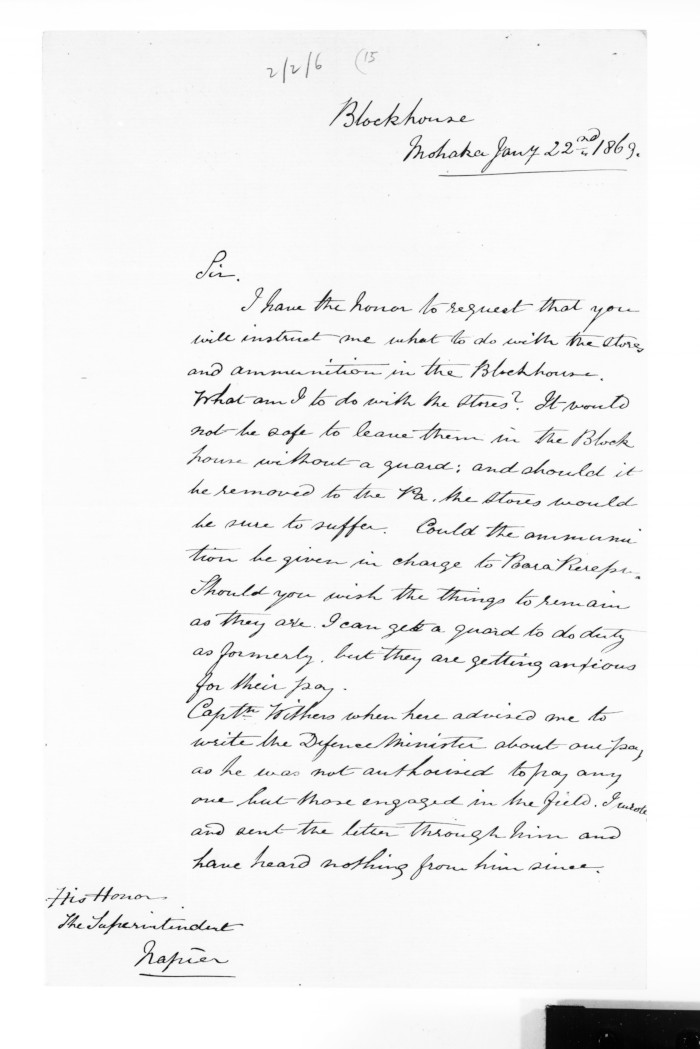 2/2/6 (15
Blockhouse
Mohaka Jany 22nd 1869.
Sir.
I have the honor to request that you
will instruct me what to do with the stores
and ammunition in the Blockhouse.
What am I to do with the stores? It would
not be safe to leave them in the Block
house without a guard; and should it
be removed to the Pa. the stores would
be sure to suffer. Could the ammuni
tion be given in charge to
Should you wish the things to remain
as they are. I can get a guard to do duty
as formerly. but they are getting anxious
for their pay.
Captn Withers when here advised me to
write the Defence Minister about our pay
as he was not authorised to pay any
one but those engaged in the field. I wrote
and sent the letter through him and
have heard nothing from him since.
His Honor
The Superintendent
Napier